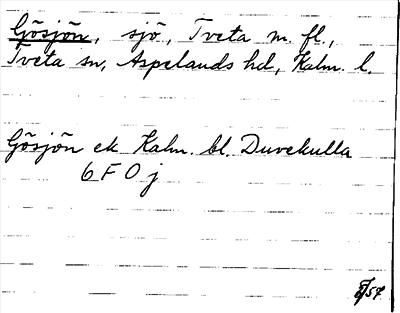 Gösjön, sjö, Tveta m. fl.,
Tveta sn, Aspelands hd, Kalm. l.
Gösjön ek Kalm. bl. Duvekulla
6 F 0 j